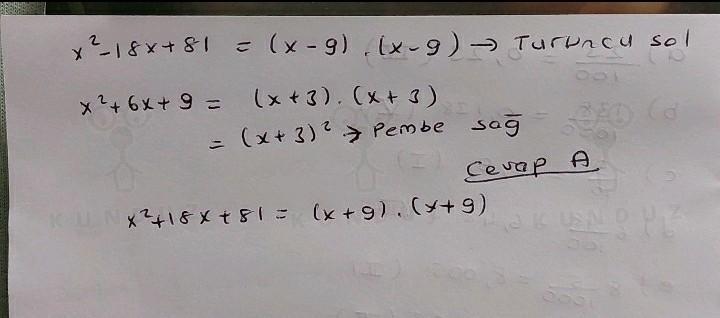 x²-18x+81 = (x-9).(x-9) → Turuncu sol
x²+6x+9 = (x+3).(x+3)
= (x+3)² → Pembe sağ
Cevap A
x²+18x+81 = (x+9).(x+9)